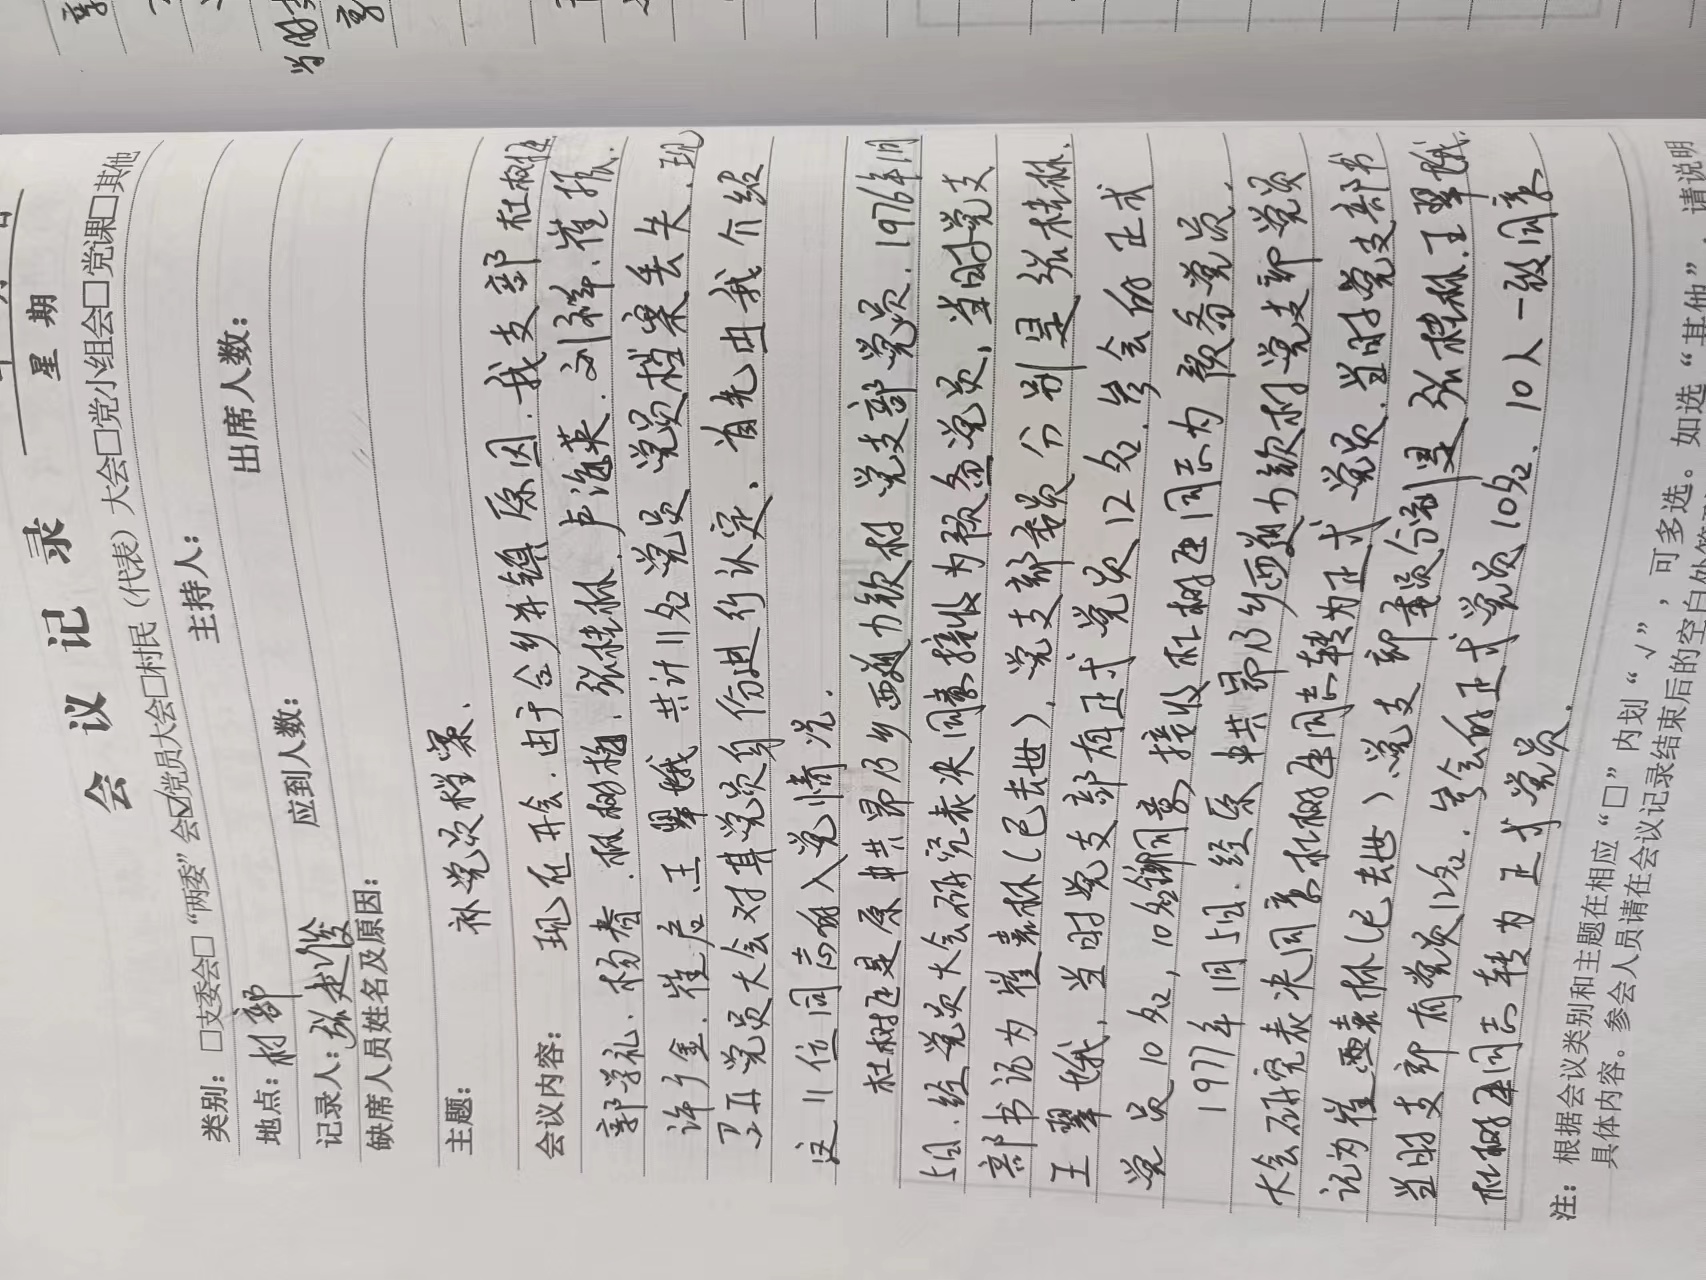 会议记录
星期
类别：□支委会□“两委”会☑党员大会□村民（代表）大会□党小组会□党课□其他
地点：村部 主持人：
记录人：张建俊 应到人数： 出席人数：
缺席人员姓名及原因：
主题： 补党员档案、
会议内容： 现在开会.由于合乡并镇原因.我支部杜树廷
郭学礼、杨春、 张桂林.卢海英.刘祥、崔振、
许广金、崔启、王翠娥 共计11名党员党员档案丢失、现
召开党员大会对其党员身份进行认定、首先由我介绍
这11位同志的入党情况.
杜树廷是原中共昂乃乡西迪力欽村党支部党员.1976年1月
5日.经党员大会研究表决同意接收为预备党员、当时党支
部书记为崔景林(已去世)、党支部委员分别是张桂林、
王翠娥、当时党支部有正式党员12名、与会的正式
党员10名，10名都同意接收杜树廷同志为预备党员、
1977年1月5日.经原中共昂乃乡西迪力欽村党支部党员
大会研究表决同意杜树廷同志转为正式党员、当时党支部书
记为崔景林(已去世)党支部委员分别是张桂林.王翠娥、
当时支部有党员12名、与会的正式党员10名、10人一致同意
杜树廷同志转为正式党员、
注：根据会议类别和主题在相应“□”内划“√”，可多选。如选“其他”，请说明
具体内容。参会人员请在会议记录结束后的空白处